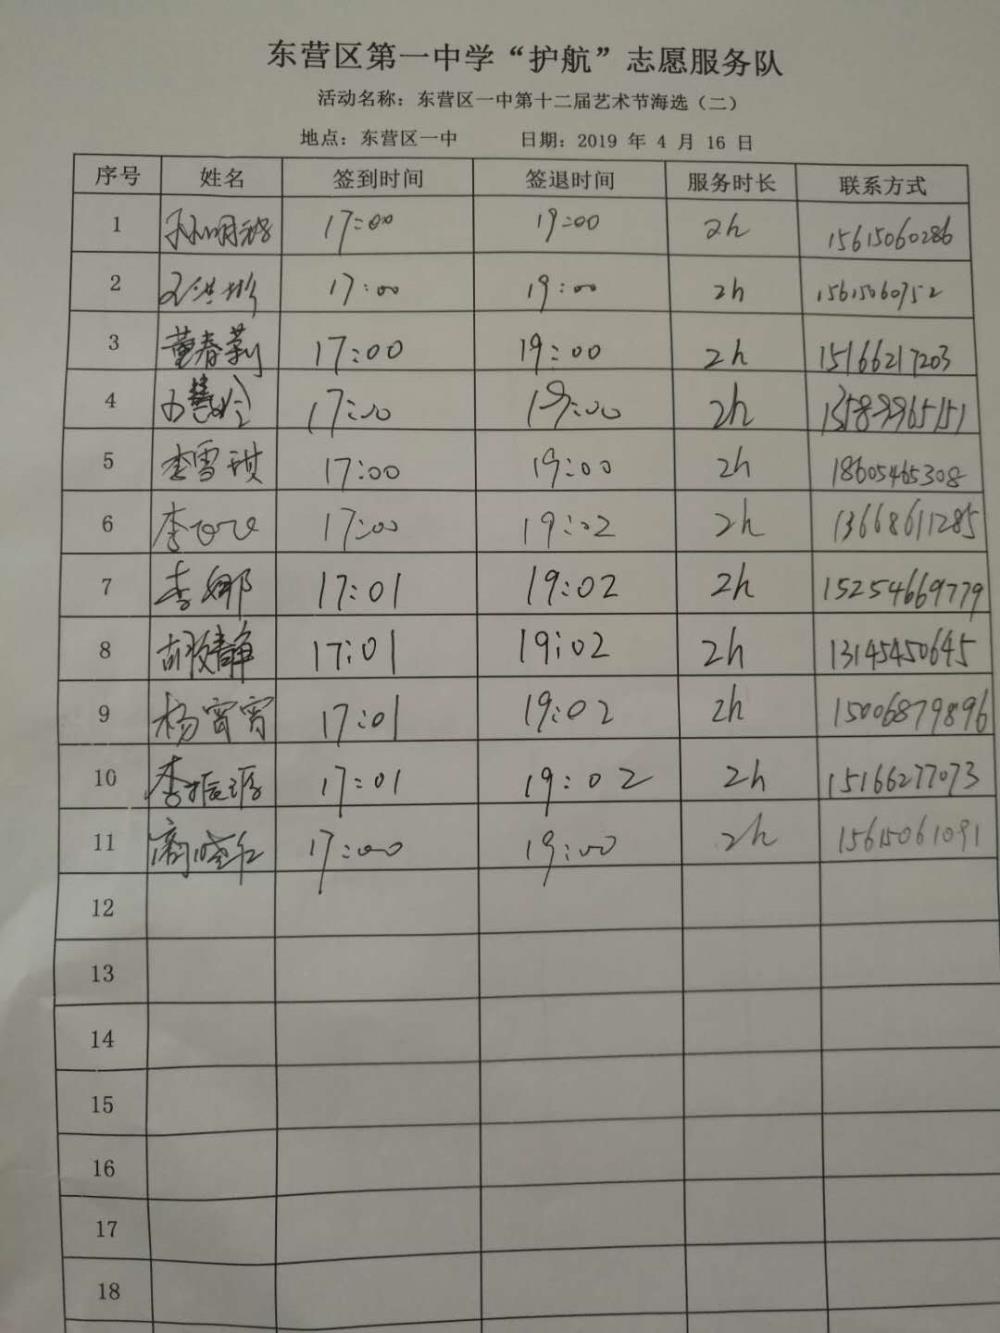 东营区第一中学“护航”志愿服务队
活动名称：东营区一中第十二届艺术节海选（二）
地点：东营区一中 日期：2019 年 4 月 16 日
序号 姓名 签到时间 签退时间 服务时长 联系方式
1 17:00 19:00 2h 15615060286
2 17:00 19:00 2h 15615060752
3 董春莉 17:00 19:00 2h 15166217203
4 17:00 19:00 2h
5 李雪琪 17:00 19:00 2h 18605465308
6 李 17:00 19:02 2h 13668611285
7 李娜 17:01 19:02 2h 15254669779
8 胡 静 17:01 19:02 2h 13145450645
9 杨宵宵 17:01 19:02 2h 15006879896
10 李振 17:01 19:02 2h 15166277073
11 17:00 19:00 2h 15615061091
12
13
14
15
16
17
18